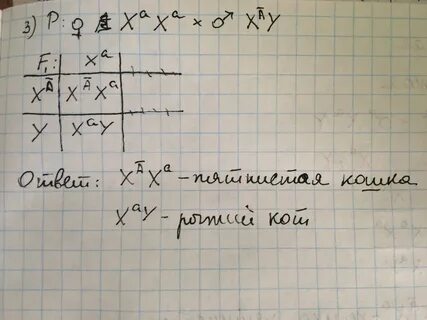 3) P: ♀ XᵃXᵃ × ♂ Xᴬ̄Y
F₁: Xᵃ
Xᴬ̄ Xᴬ̄Xᵃ
Y XᵃY
Ответ: Xᴬ̄Xᵃ - пятнистая кошка
XᵃY - рыжий кот